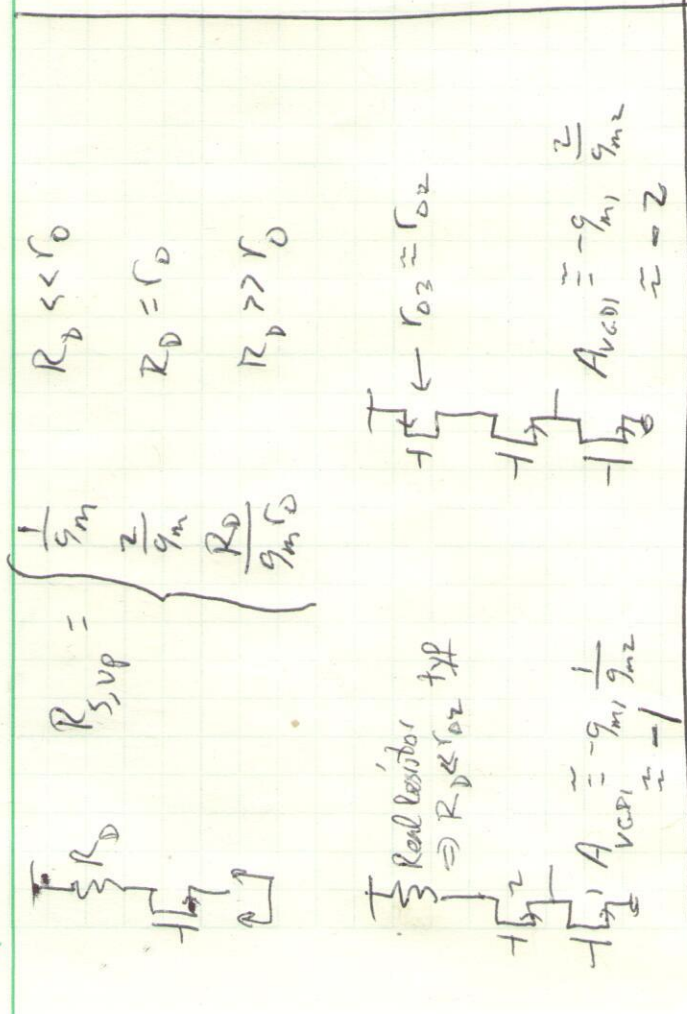 R_D
R_{S,up} = { 1/g_m   R_D << r_o
2/g_m   R_D = r_o
R_D/(g_m r_o)   R_D >> r_o
Real Resistor
⇒ R_D << r_{o2} typ
2
1
A_{VGD1} ≅ -g_{m1} 1/g_{m2}
≅ -1
← r_{o3} ≅ r_{o2}
A_{VGD1} ≅ -g_{m1} 2/g_{m2}
≅ -2